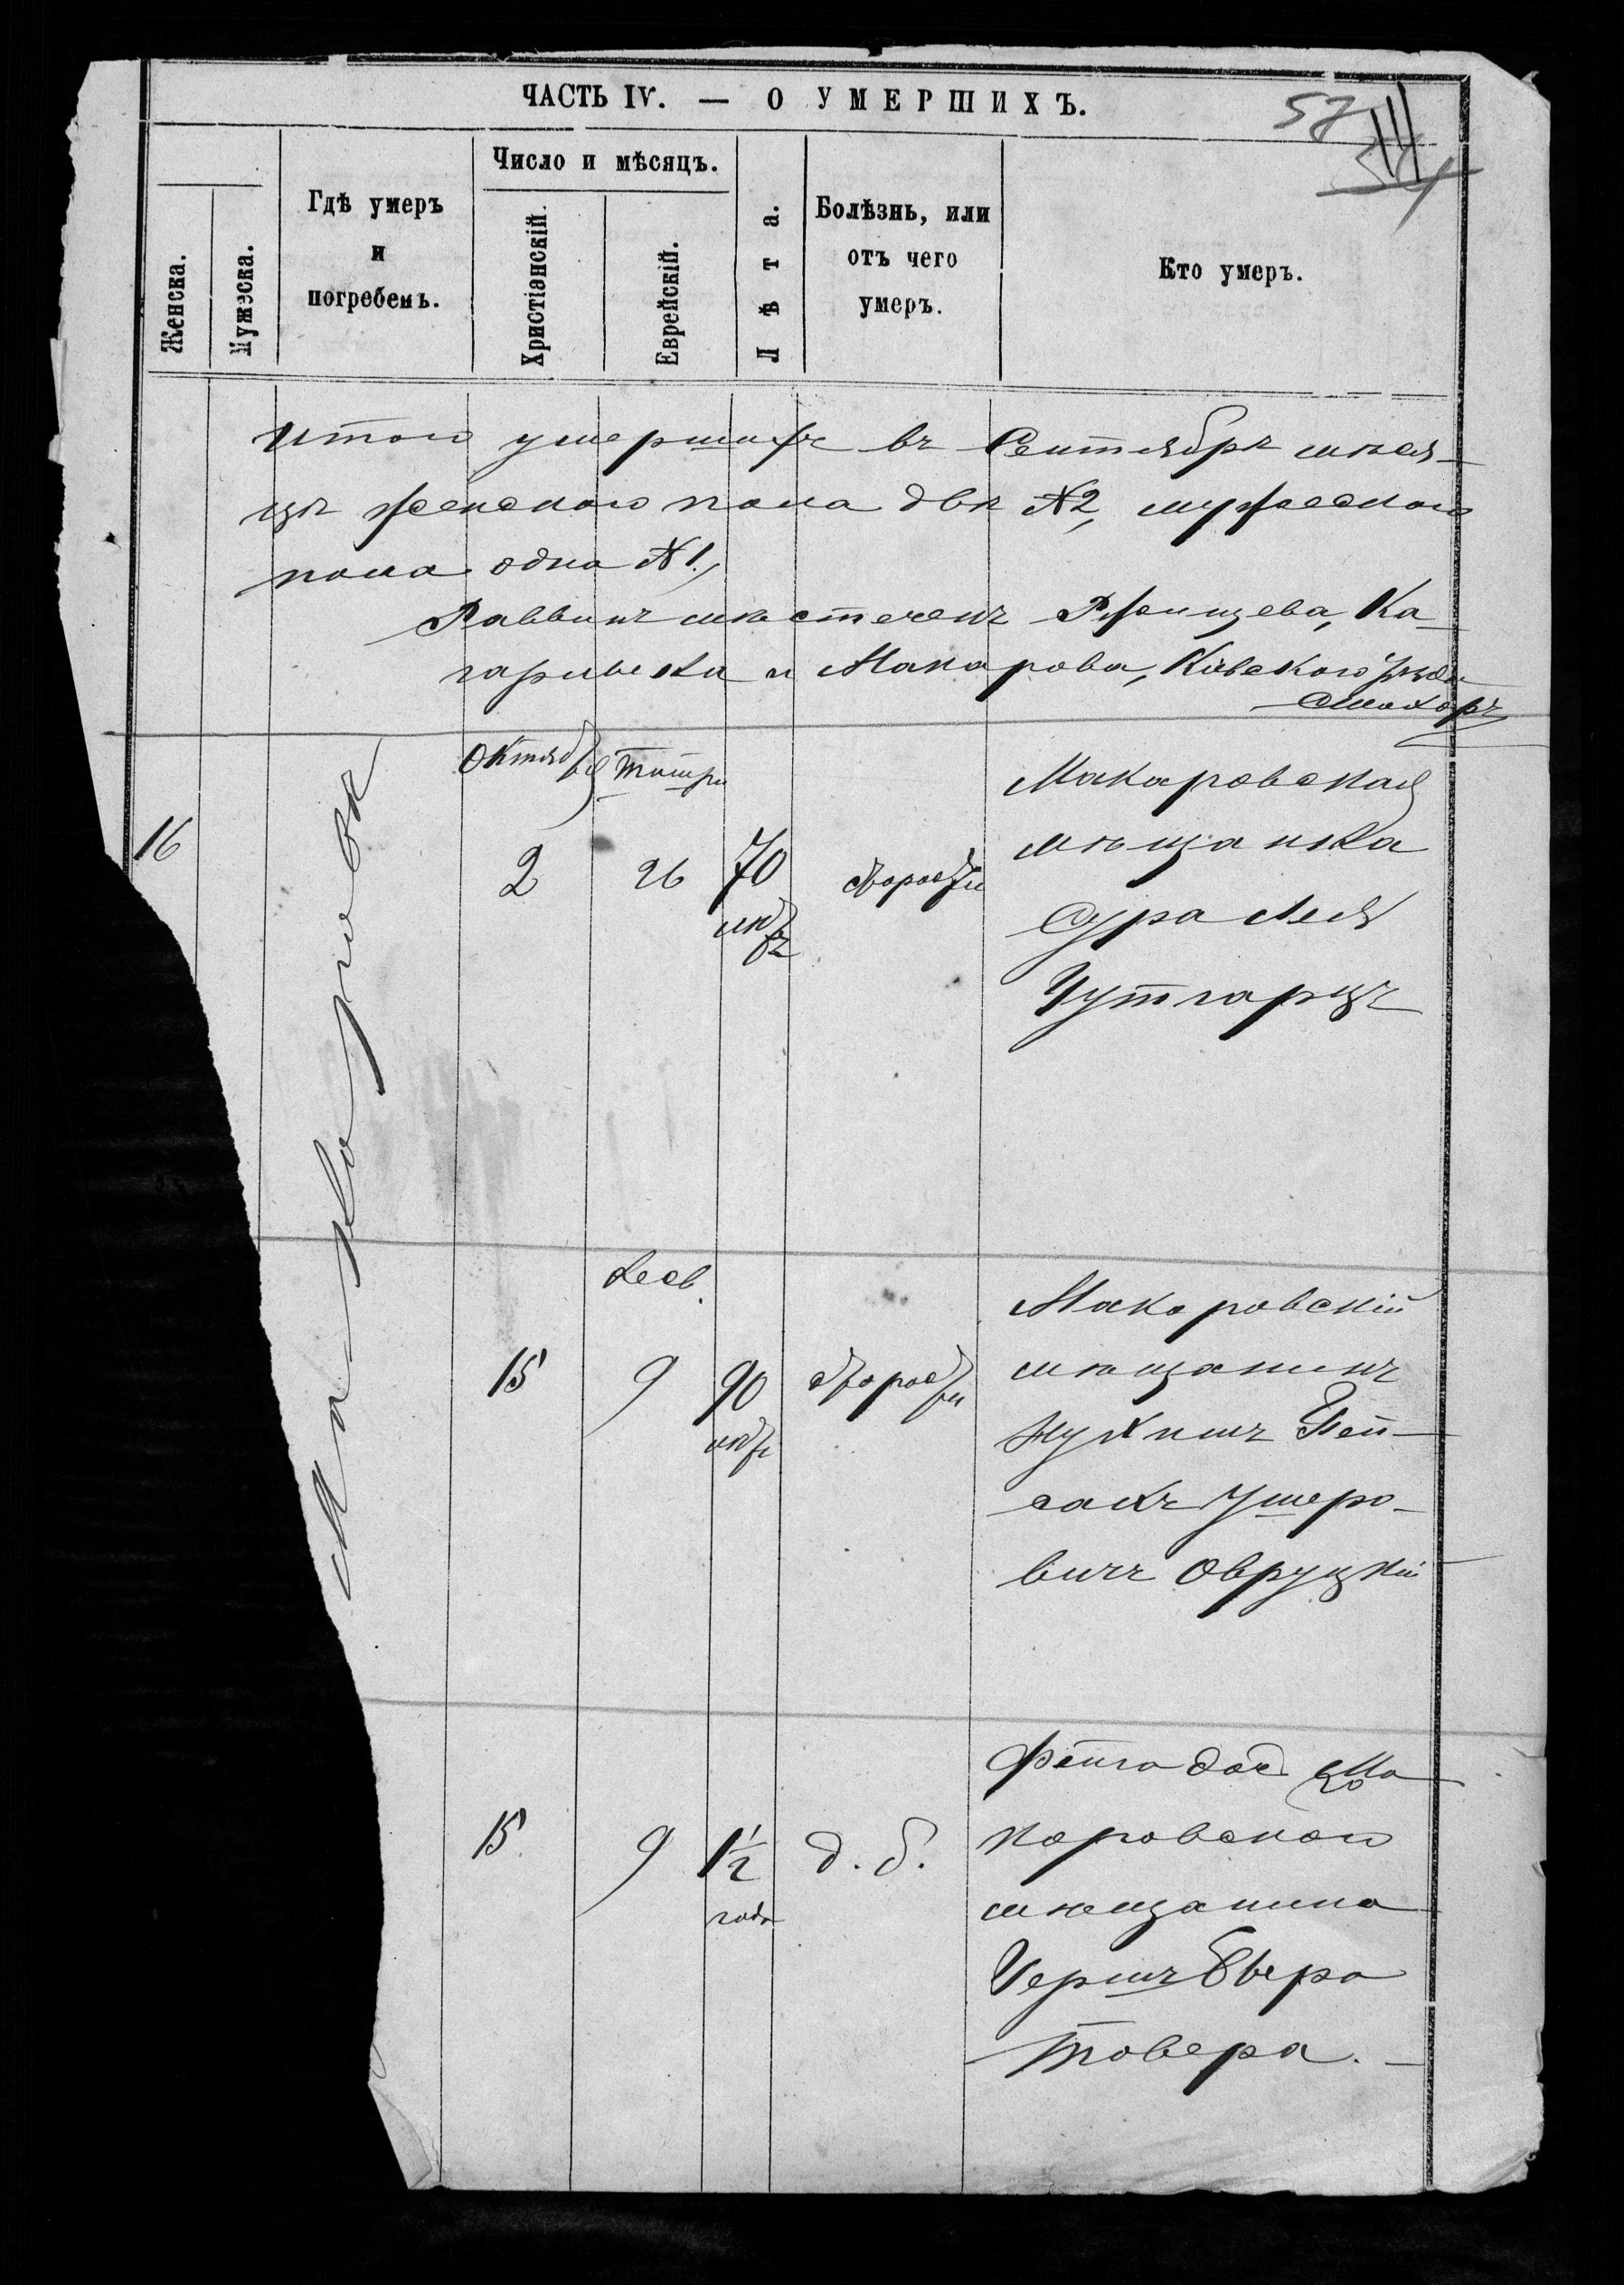 ЧАСТЬ IV. — О УМЕРШИХЪ.
57
Женска.
Мужеска.
Гдѣ умеръ
и
погребенъ.
Число и мѣсяцъ.
Христіанскій.
Еврейскій.
Лѣта.
Болѣзнь, или
отъ чего
умеръ.
Кто умеръ.
Итого умершихъ въ Сентябрѣ мѣся-
цѣ женского пола двѣ №2, мужеского
пола одна №1,
Раввинъ мѣстечекъ Ржищева, Ка-
гарлыка и Макарова, Кіевского уѣзда
Октября Тишри
16
2 26 70
лѣтъ
старости
Макаровская
мѣщанка
Сура Лея
Чутгарцъ
Макаровѣ
Хесв.
15 9 90
лѣтъ
старости
Макаровскій
мѣщанинъ
Нухимъ Пей-
сахъ Ушеро-
вичъ Овруцкій
15 9 1½
года
д. б.
Фейга доч Ма-
каровского
мѣщанина
Гершъ Бера
Товера. —